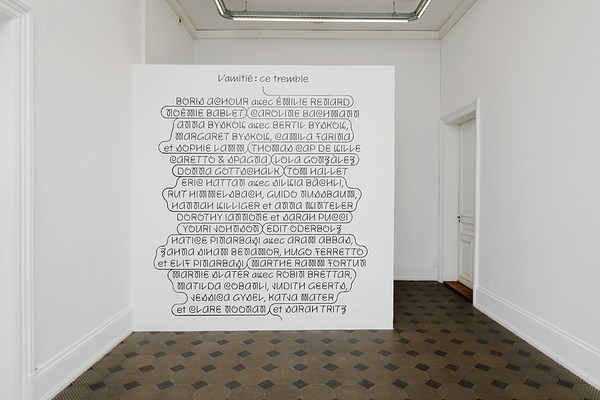 L'amitié : ce tremble
BORIS ACHOUR avec ÉMILIE RENARD
NOÉMIE BABLET CAROLINE BACHMANN
ANNA BYSKOV avec BERTIL BYSKOV,
MARGARET BYSKOV, CAMILA FARINA
et SOPHIE LAMM, THOMAS CAP DE VILLE
CARETTO & SPAGNA LOLA GONZÀLEZ
DONNA GOTTSCHALK TOM HALLET
ERIC HATTAN avec SILVIA BÄCHLI,
RUT HIMMELSBACH, GUIDO NUSSBAUM,
HANNAH VILLIGER et ANNA WINTELER
DOROTHY IANNONE et SARAH PUCCI
YOURI JOHNSON EDIT ODERBOLZ
HATICE PINARBAŞI avec ARAM ABBAS,
ZAHNA SIHAM BENAMOR, HUGO FERRETTO
et ELIF PINARBAŞI MARTHE RAMM FORTUN
MARNIE SLATER avec ROBIN BRETTAR,
MATILDA COBANLI, JUDITH GEERTS,
JESSICA GYSEL, KATJA MATER
et CLARE NOONAN et SARAH TRITZ